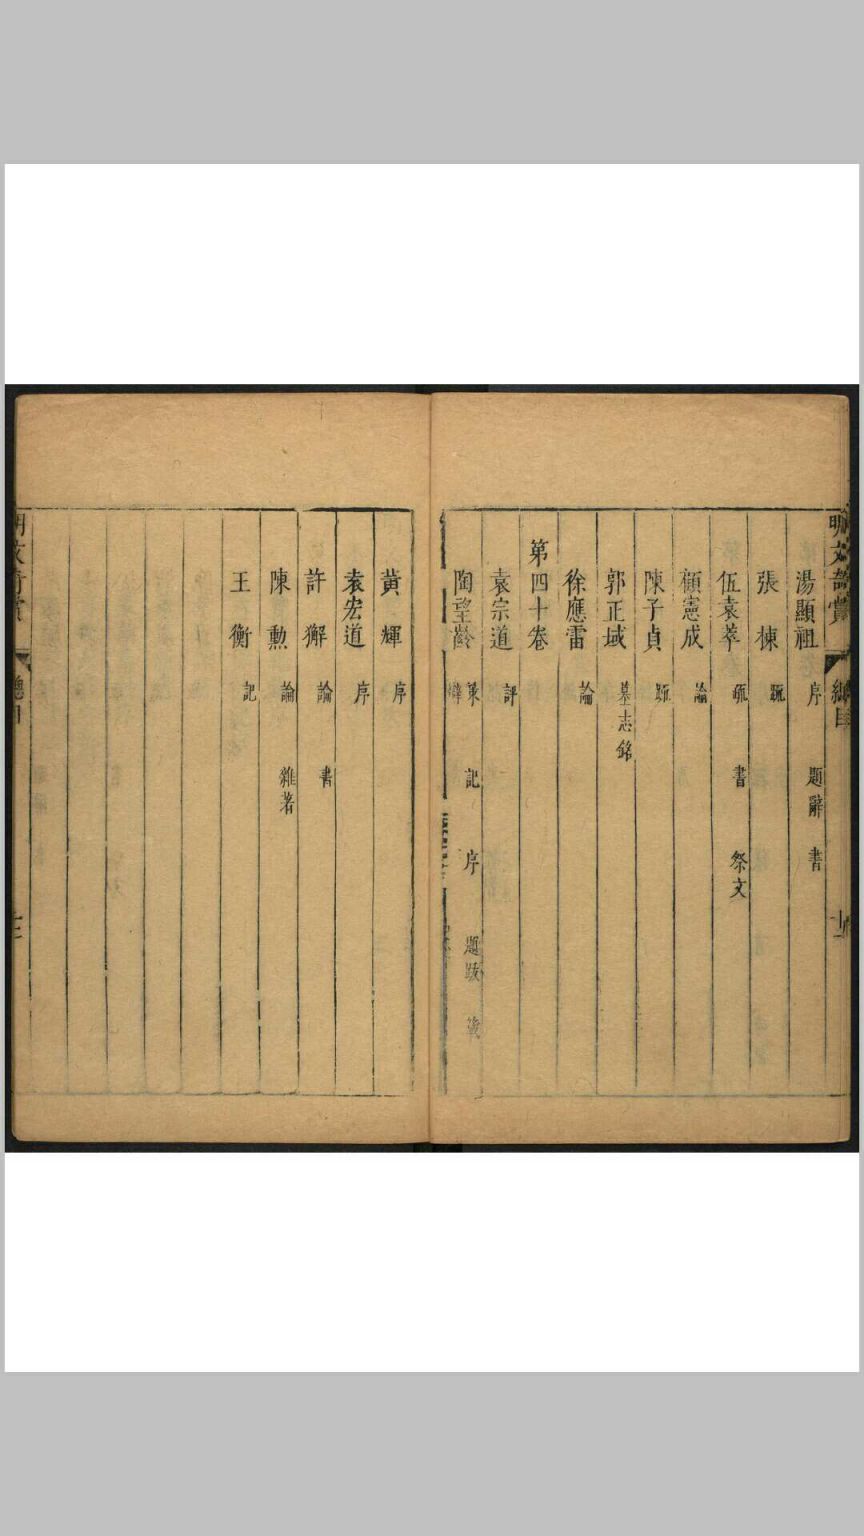 明文奇賞
總目
湯顯祖 序 題辭 書
張棟 疏
伍袁萃 疏 書 祭文
顧憲成 論
陳子貞 疏
郭正域 墓志銘
徐應雷 論
第四十卷
袁宗道 評
陶望齡 策 記 序 題跋 箴
辯
黃輝 序
袁宏道 序
許獬 論 書
陳勳 論 雜著
王衡 記
明文奇賞
總目